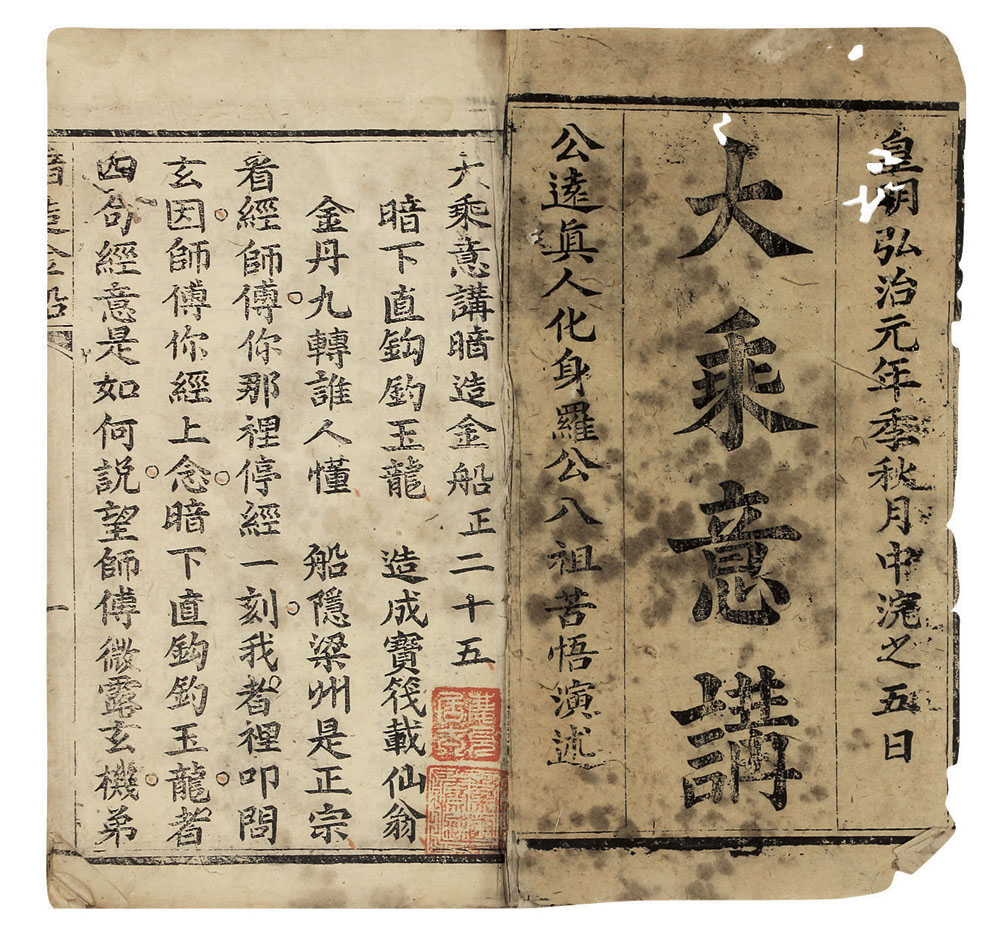 皇明弘治元年季秋月中浣之五日
大乘意講
公遠眞人化身羅公八祖苦悟演述
大乘意講暗造金船正二十五
暗下直鈎釣玉龍　造成寶筏載仙翁
金丹九轉誰人懂　船隱梁州是正宗
看經師傅你那裡停經一刻我者裡叩問
玄因師傅你經上念暗下直鈎釣玉龍者
四句經意是如何說望師傅微露玄機弟
暗造金船
一